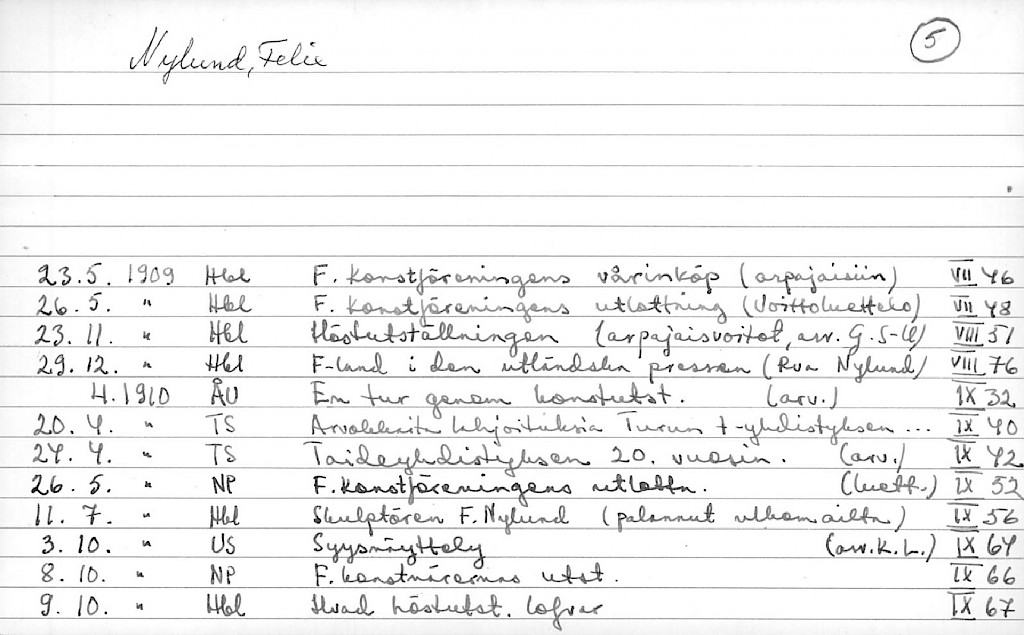 Nylund, Felix 5
23.5. 1909 Hbl F. Konstföreningens vårinköp (arpajaisiin) VII 46
26.5. " Hbl F. Konstföreningens utlottning (Voittoluettelo) VII 48
23.11. " Hbl Höstutställningen (arpajaisvoitot, arv. G. S-ll) VIII 51
29.12. " Hbl F-land i den utländska pressen (Rva Nylund) VIII 76
4.1910 ÅU En tur genom konstutst. (arv.) IX 32
20.4. " TS Arvokkaita lahjoituksia Turun t-yhdistyksen ... IX 40
24.4. " TS Taideyhdistyksen 20. vuosin. (arv.) IX 42
26.5. " NP F. Konstföreningens utlottn. (luett.) IX 52
11.7. " Hbl Skulptören F. Nylund (palannut ulkomailta) IX 56
3.10. " US Syysnäyttely (arv. K. L.) IX 64
8.10. " NP F. konstnärernas utst. IX 66
9.10. " Hbl Hvad höstutst. lofvar IX 67